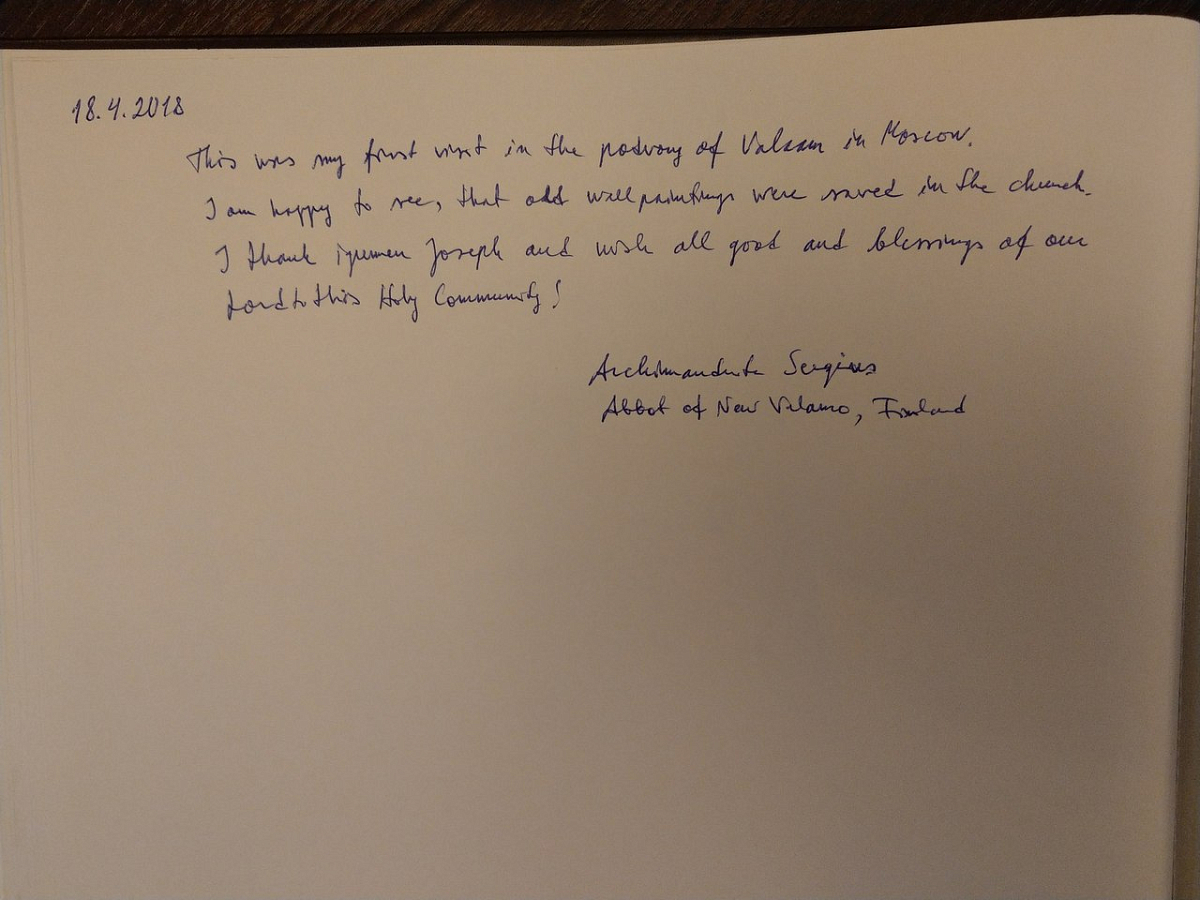 18.4.2018
This was my first visit in the podvory of Valaam in Moscow.
I am happy to see, that old wallpaintings were saved in the church.
I thank igumen Joseph and wish all good and blessings of our
Lord to this Holy Community!
Archimandrite Sergius
Abbot of New Valamo, Finland